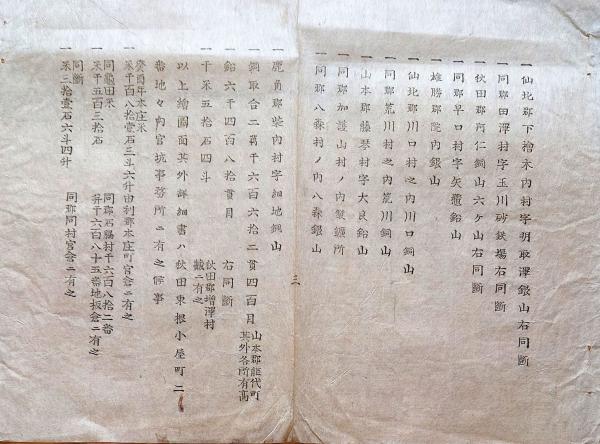 一仙北郡下檜木内村字明取澤銀山右同断
一同郡田澤村字玉川砂鉄場右同断
一秋田郡阿仁銅山六ヶ山右同断
一同郡早口村字矢櫃鉛山
一雄勝郡院内銀山
一仙北郡川口村之内川口銅山
一同郡荒川村之内荒川銅山
一山本郡藤琴村字大良鉛山
一同郡加護山村ノ内製煉所
一同郡八森村ノ内八森銀山
三
一鹿角郡柴内村字細地銅山
一銅取合二萬千六百六拾二貫四百目 山本郡能代町其外各所有高
一鉛六千四百八拾貫目 右同断
一千米五拾石四斗 秋田郡増澤村蔵ニ有之
以上繪圖面其外詳細書ハ秋田東根小屋町二
番地々内官坑事務所ニ有之候事
癸酉年本庄米
一米千百八拾壹石三斗六升由利郡本庄町官倉ニ有之
同龜田米
一米千五百三拾石 同郡石脇村千六百八拾二番
并千六百八十五番地板倉ニ有之
同断
一米三拾壹石六斗四升 同郡同村官倉ニ有之